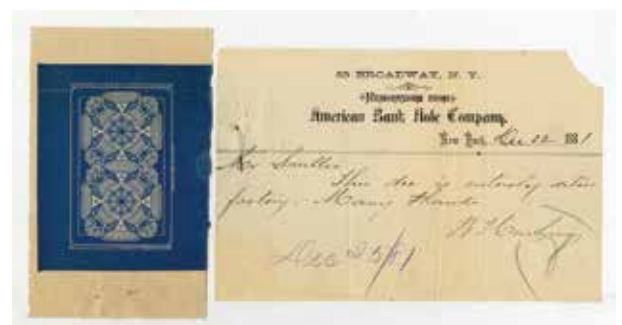 BROADWAY, N. Y.
American Bank Note Company,
New York, Dec 22 1881
This die is entirely satis
factory. Many thanks
Dec 23/81